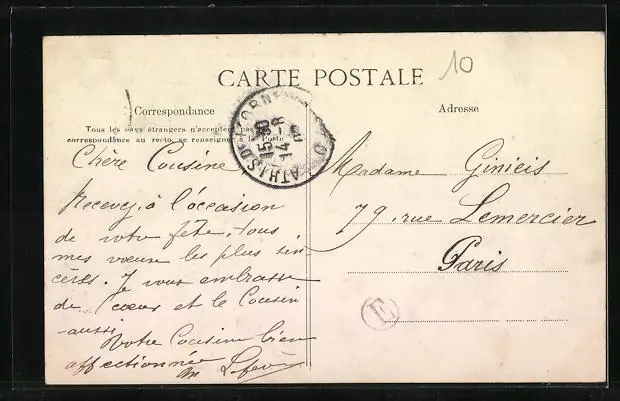 10
CARTE POSTALE
Correspondance
Adresse
Tous les pays étrangers n'acceptent pas
correspondance au recto, se renseigner à la Poste
ATHIS DE L'ORNE
15 30
14 -8
Chère Cousine
Recevez, à l'occasion
de votre fête, tous
mes vœux les plus sin-
cères. Je vous embrasse
de cœur et le Cousin
aussi
Votre Cousine bien
affectionnée
M Lefèv
Madame Ginieis
79, rue Lemercier
Paris
E